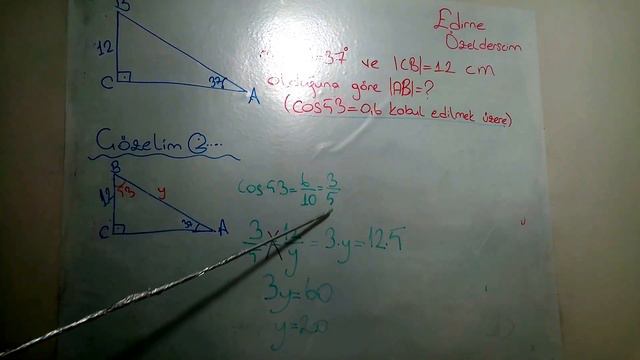 B
Edirne
Özeldersim
12
37° ve |CB|=12 cm
C
37
A
olduğuna göre |AB|=?
(cos53=0,6 kabul edilmek üzere)
Çözelim
B
12
53
y
cos53=6/10=3/5
C
37
A
3/5 12/y = 3.y=12.5
3y=60
y=20